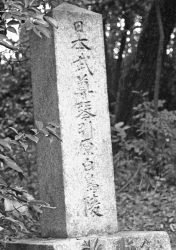 日本武尊琴弾原白鳥陵